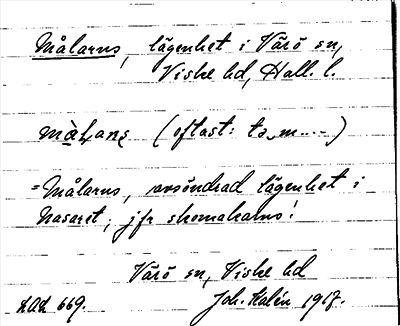 Målarns, lägenhet i Värö sn,
Viske hd, Hall. l.
(oftast: tə m...-)
=Målarns, avsöndrad lägenhet i
Nasaret; jfr skomakarns!
Värö sn, Viske hd
LAL 669. Joh. Kalén 1917.